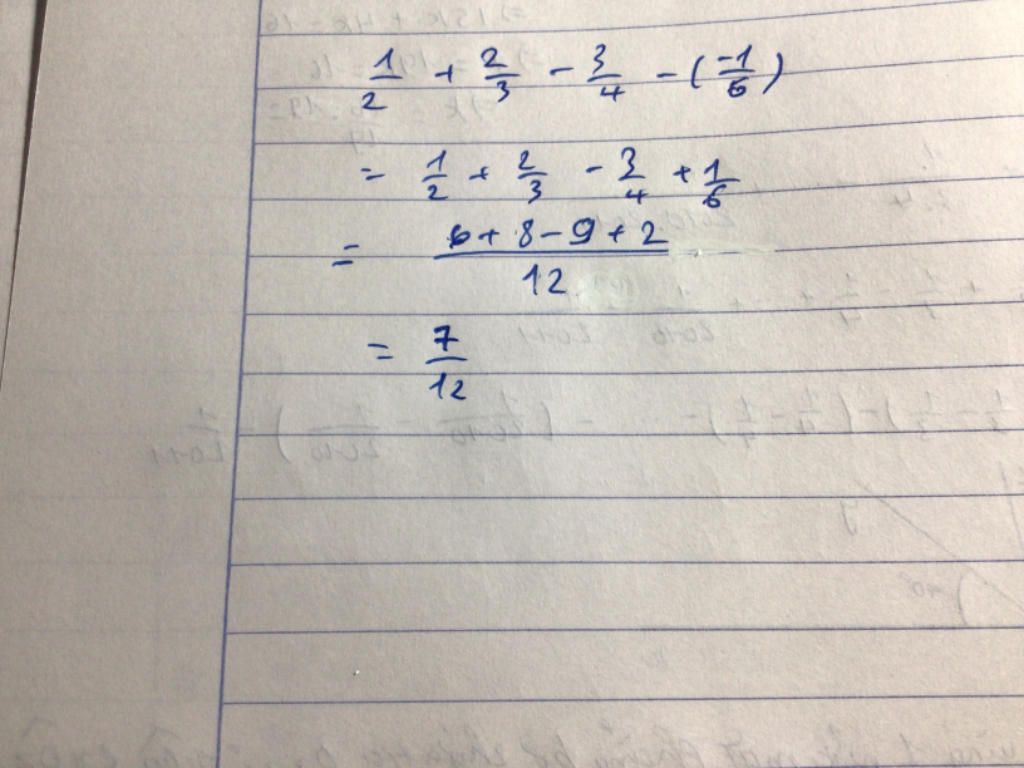 1/2 + 2/3 - 3/4 - (-1/6)
= 1/2 + 2/3 - 3/4 + 1/6
= (6 + 8 - 9 + 2)/12
= 7/12